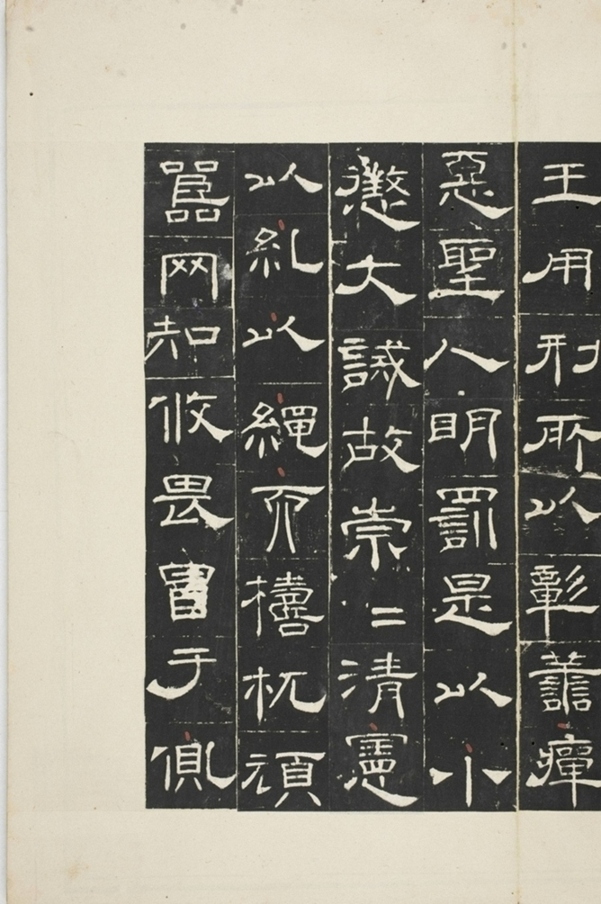 王用刑所以彰譱癉
惡聖人明罰是以小
懲大誡故崇二清憲
以糺以繩而檮杌頑
嚚网知攸畏冒于